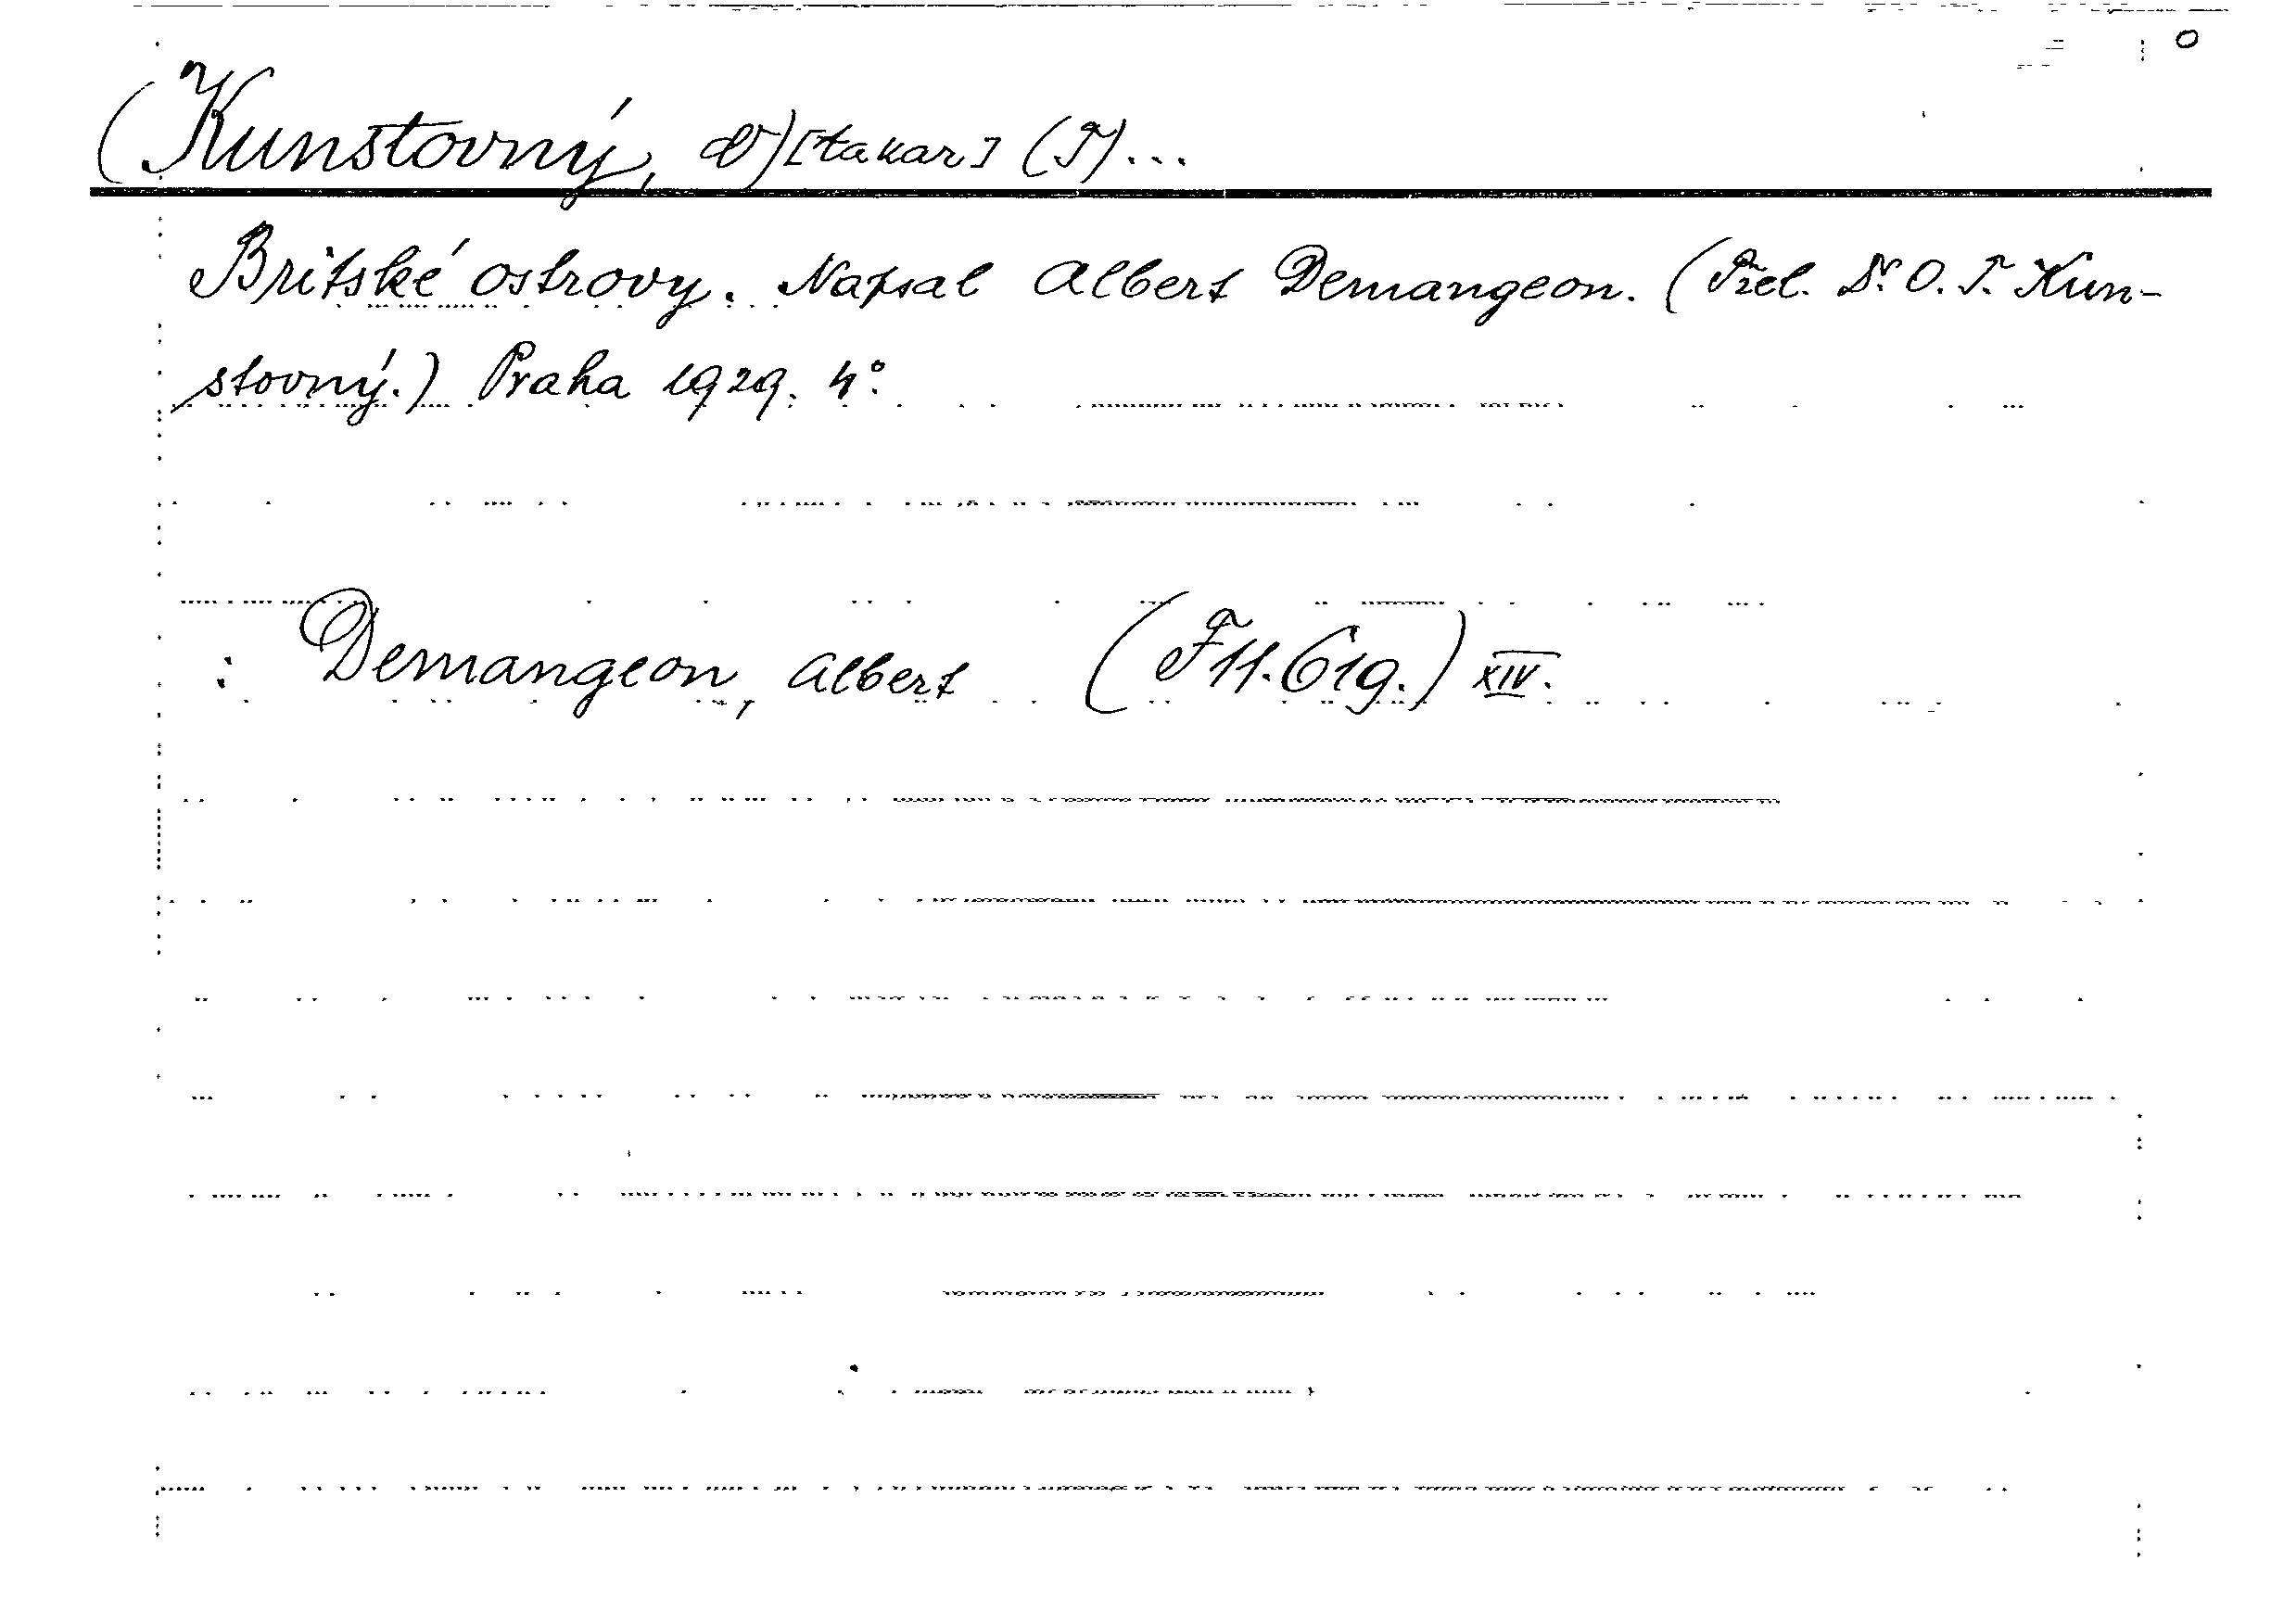 (Kunstovný, O)[takar] (T)...
Britské ostrovy. Napsal Albert Demangeon. (Přel. Dr. O. T. Kun-
stovný.) Praha 1929. 4°.
: Demangeon, Albert (F 11. G 19.) XIV.